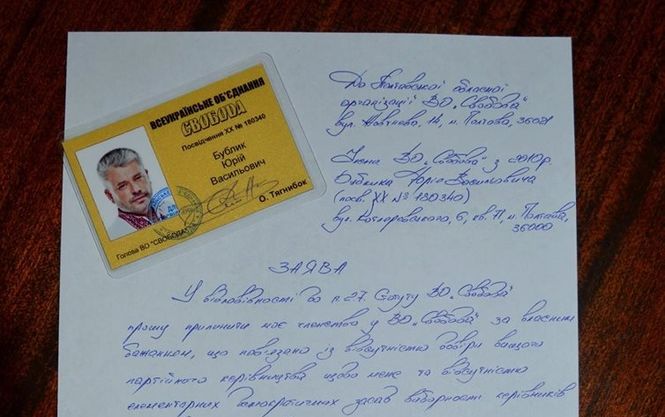 ВСЕУКРАЇНСЬКЕ ОБ'ЄДНАННЯ
СВОБОДА
Посвідчення ХХ № 180340
Бублик
Юрій
Васильович
О. Тягнибок
Голова ВО "СВОБОДА"
До Полтавської обласної
організації ВО „Свобода"
вул. Жовтнева, 14, м. Полтава, 36021
Члена ВО „Свобода" з 2010р
Бублика Юрія Васильовича
(посв. ХХ № 180340)
вул. Котляревського, 6, кв. 17, м. Полтава,
36000
ЗАЯВА
У відповідності до п. 27. Статуту ВО „Свобода"
прошу припинити моє членство у ВО „Свобода" за власним
бажанням, що пов'язано із відсутністю довіри вищого
партійного керівництва щодо мене та відсутністю
елементарних демократичних засад виборності керівників